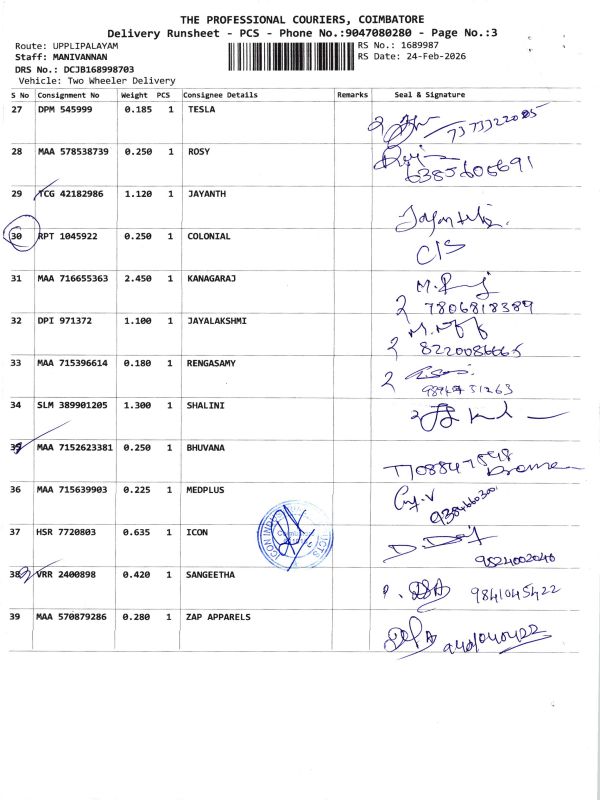 THE PROFESSIONAL COURIERS, COIMBATORE
Delivery Runsheet - PCS - Phone No.:9047080280 - Page No.:3
Route: UPPLIPALAYAM
RS No.: 1689987
Staff: MANIVANNAN
RS Date: 24-Feb-2026
DRS No.: DCJB168998703
Vehicle: Two Wheeler Delivery
S No Consignment No Weight PCS Consignee Details Remarks Seal & Signature
27 DPM 545999 0.185 1 TESLA
28 MAA 578538739 0.250 1 ROSY
6385606691
29 TCG 42182986 1.120 1 JAYANTH
30 RPT 1045922 0.250 1 COLONIAL
C/S
31 MAA 716655363 2.450 1 KANAGARAJ
7806818389
32 DPI 971372 1.100 1 JAYALAKSHMI
8220086665
33 MAA 715396614 0.180 1 RENGASAMY
34 SLM 389901205 1.300 1 SHALINI
35 MAA 7152623381 0.250 1 BHUVANA
36 MAA 715639903 0.225 1 MEDPLUS
37 HSR 7720803 0.635 1 ICON
9824002046
38 VRR 2400898 0.420 1 SANGEETHA
9841045422
39 MAA 570879286 0.280 1 ZAP APPARELS